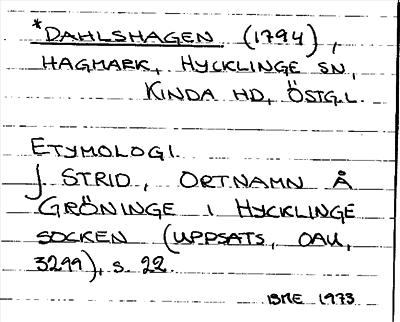 *DAHLSHAGEN (1794),
HAGMARK, HYCKLINGE SN,
KINDA HD, ÖSTG.L.
ETYMOLOGI.
J. STRID, ORTNAMN Å
GRÖNINGE I HYCKLINGE
SOCKEN (UPPSATS, OAU,
3299), s. 22.
BME 1973